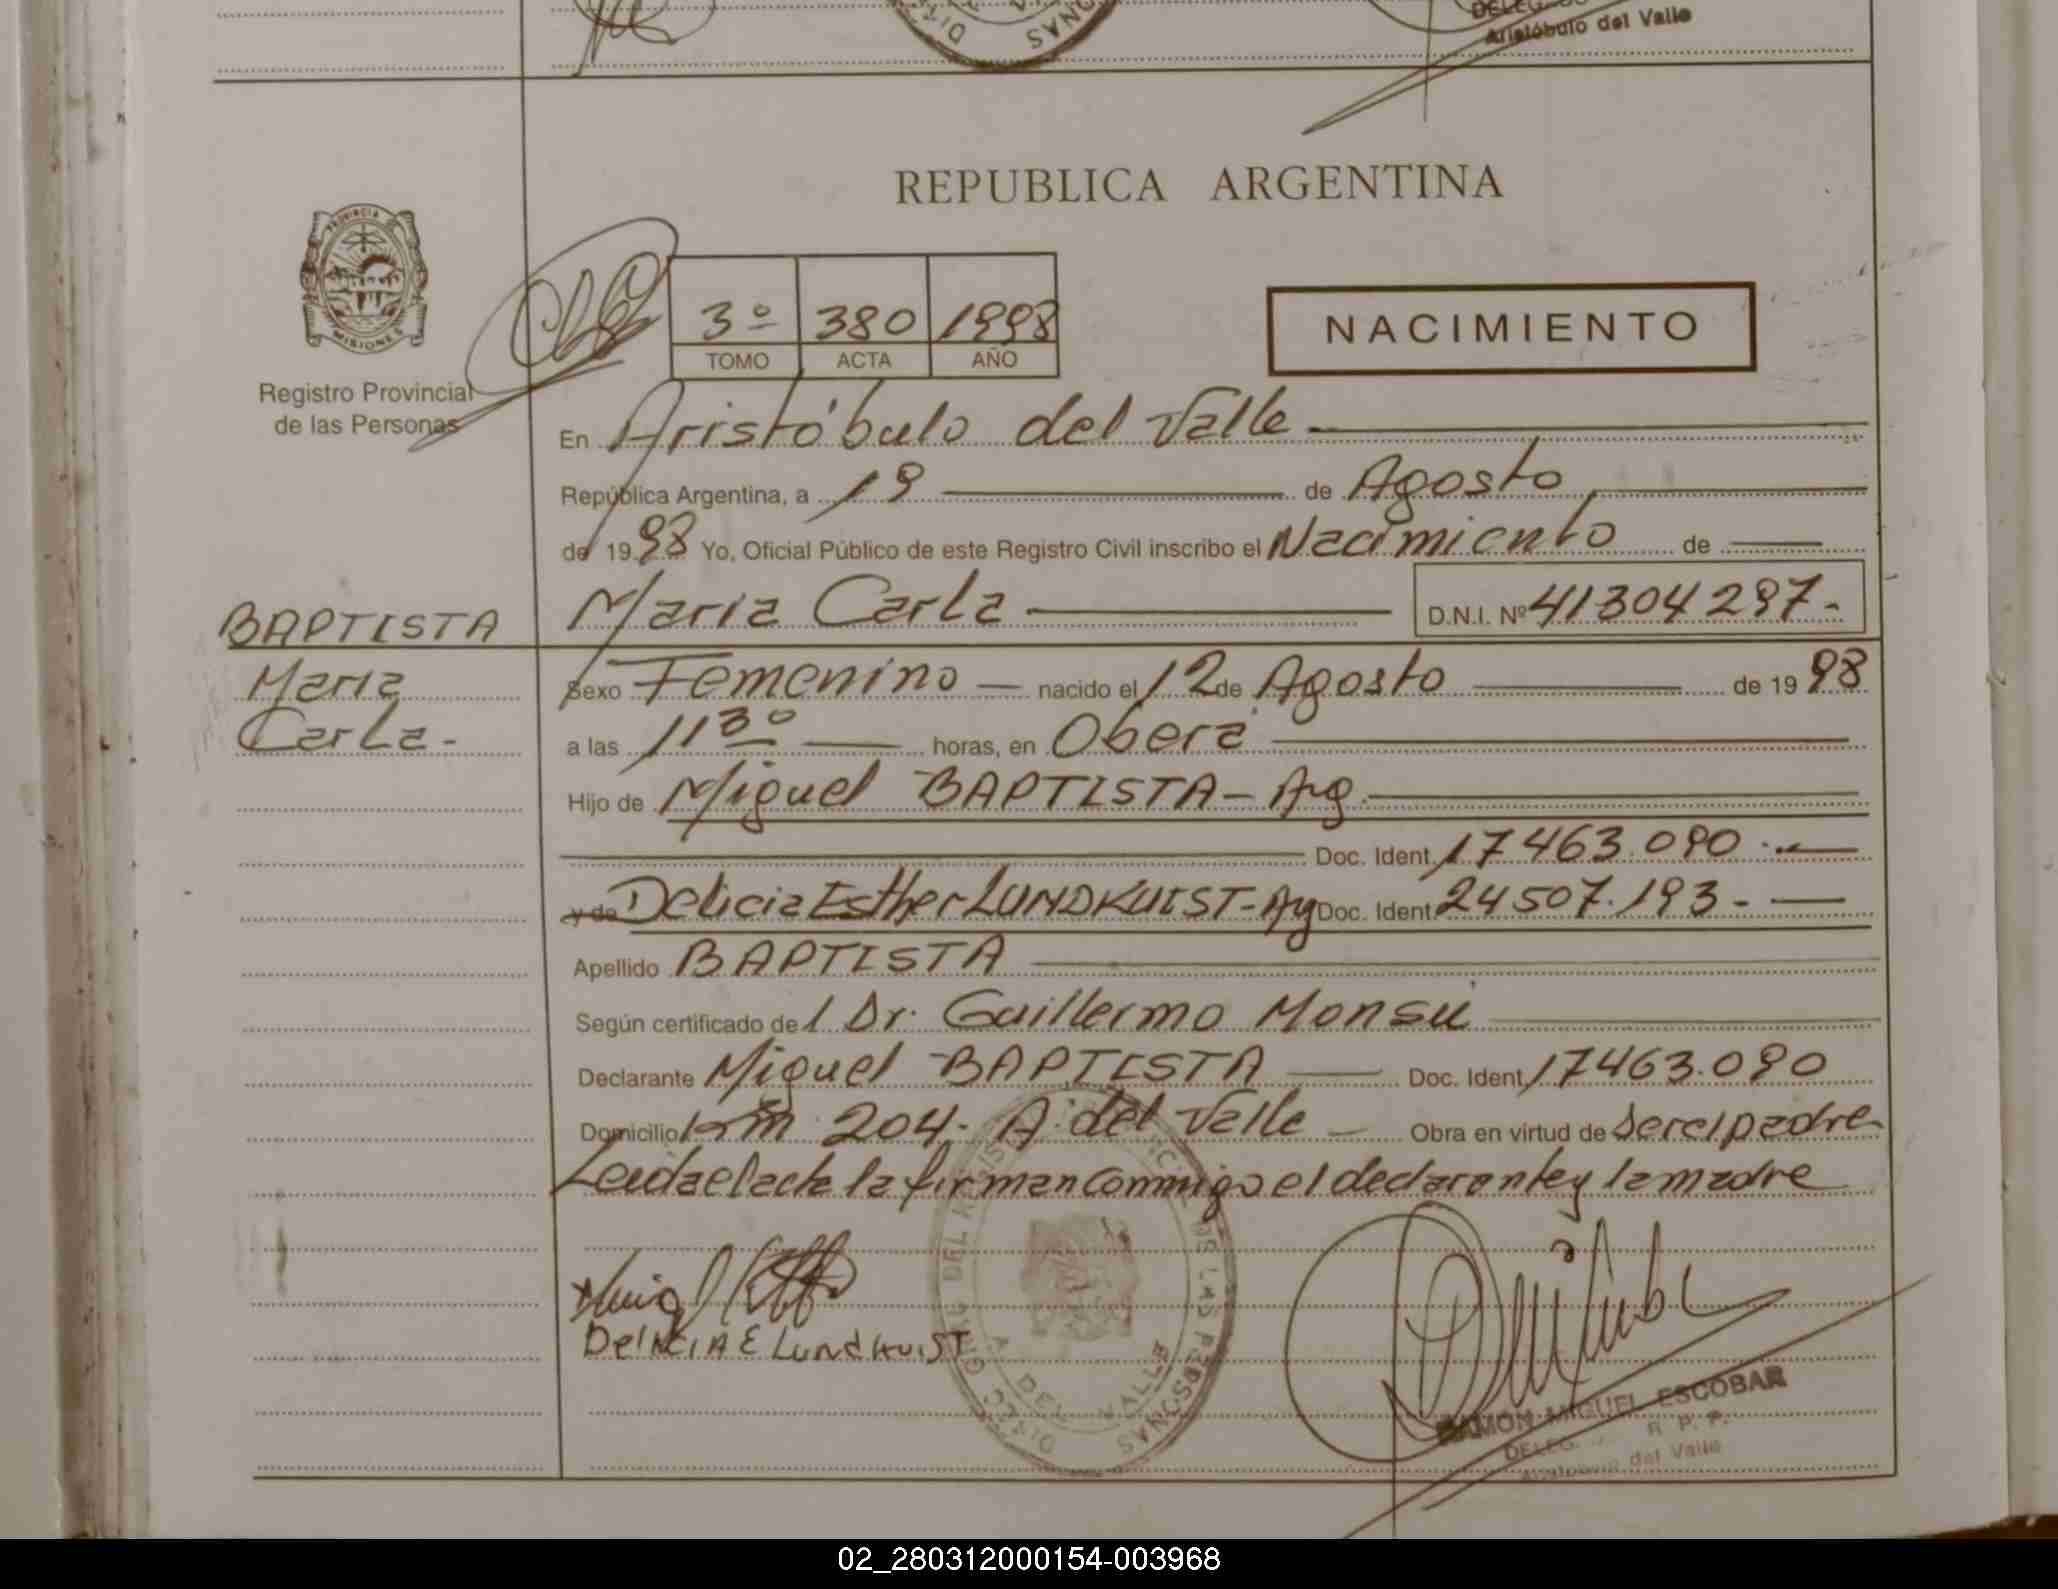 DELEG.
Aristóbulo del Valle
REPUBLICA ARGENTINA
PROVINCIA DE
MISIONES
Registro Provincial
de las Personas
3º 380 1998
TOMO ACTA AÑO
NACIMIENTO
En Aristóbulo del Valle
República Argentina, a 19 de Agosto
de 1998 Yo, Oficial Público de este Registro Civil inscribo el Nacimiento de
BAPTISTA María Carla D.N.I. Nº 41304297.-
María Sexo Femenino nacido el 12 de Agosto de 1998
Carla.- a las 11 30 horas, en Oberá
Hijo de Miguel BAPTISTA - Arg.
Doc. Ident. 17463.090.-
y de Delicia Esther LUNDKUIST - Arg Doc. Ident. 24507.193.-
Apellido BAPTISTA
Según certificado del Dr. Guillermo Monsú
Declarante Miguel BAPTISTA Doc. Ident. 17463.090
Domicilio km 204. A. del Valle Obra en virtud de ser el padre
Leída el acta la firman conmigo el declarante y la madre
DeliCIA E LundkuiST
DIREC. GRAL. DEL REGISTRO PROVINCIAL DE LAS PERSONAS
A. DEL VALLE
RAMON MIGUEL ESCOBAR
DELEG. R. P. P.
Aristóbulo del Valle
02_280312000154-003968